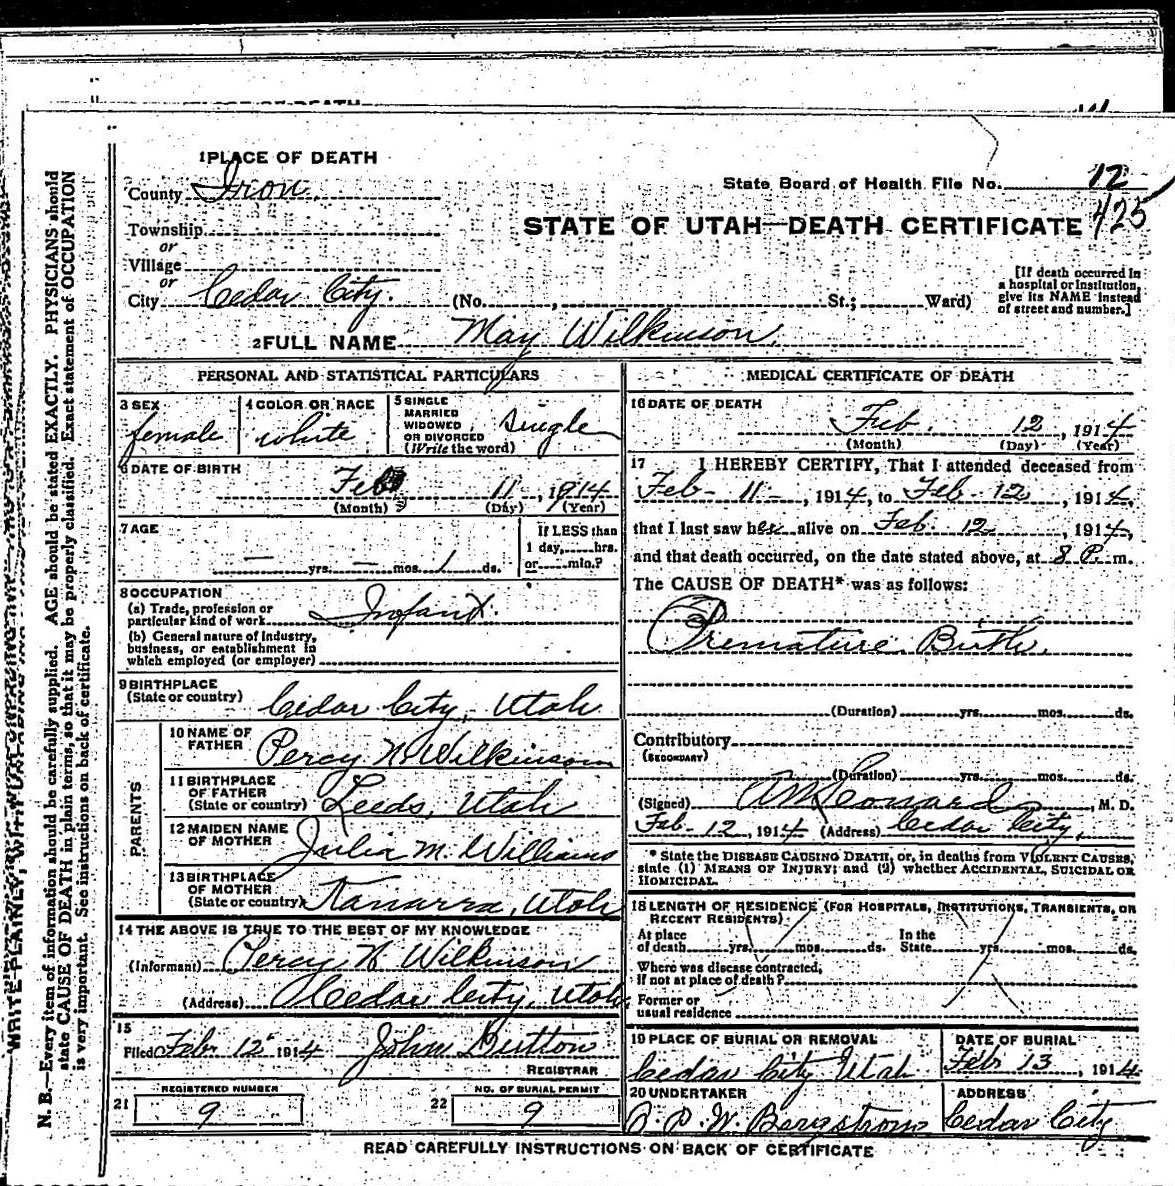 1 PLACE OF DEATH
County Iron
State Board of Health File No. 12
425
STATE OF UTAH—DEATH CERTIFICATE
Township
or
Village
or
City Cedar City. (No. , St.; Ward)
[If death occurred in
a hospital or institution,
give its NAME instead
of street and number.]
2 FULL NAME May Wilkinson
PERSONAL AND STATISTICAL PARTICULARS
3 SEX
female
4 COLOR OR RACE
white
5 SINGLE
MARRIED
WIDOWED
OR DIVORCED
(Write the word)
single
6 DATE OF BIRTH
Feb 11, 1914
(Month) (Day) (Year)
7 AGE
— yrs. — mos. 1 ds.
If LESS than
1 day, hrs.
or min.?
8 OCCUPATION
(a) Trade, profession or
particular kind of work Infant.
(b) General nature of industry,
business, or establishment in
which employed (or employer)
9 BIRTHPLACE
(State or country) Cedar City, Utah
PARENTS
10 NAME OF
FATHER Percy N. Wilkinson
11 BIRTHPLACE
OF FATHER
(State or country) Leeds, Utah
12 MAIDEN NAME
OF MOTHER Julia M. Williams
13 BIRTHPLACE
OF MOTHER
(State or country) Kanarra, Utah
14 THE ABOVE IS TRUE TO THE BEST OF MY KNOWLEDGE
(Informant) Percy N Wilkinson
(Address) Cedar City, Utah
15
Filed Feb. 12 1914 John Button
REGISTRAR
REGISTERED NUMBER
21 9
NO. OF BURIAL PERMIT
22 9
MEDICAL CERTIFICATE OF DEATH
16 DATE OF DEATH
Feb. 12, 1914
(Month) (Day) (Year)
17 I HEREBY CERTIFY, That I attended deceased from
Feb - 11 -, 1914, to Feb - 12, 1914,
that I last saw her alive on Feb. 12, 1914,
and that death occurred, on the date stated above, at 8 P. m.
The CAUSE OF DEATH* was as follows:
Premature Birth.
(Duration) yrs. mos. ds.
Contributory
(SECONDARY)
(Duration) yrs. mos. ds.
(Signed) Leonard, M. D.
Feb. 12, 1914 (Address) Cedar City,
* State the DISEASE CAUSING DEATH, or, in deaths from VIOLENT CAUSES,
state (1) MEANS OF INJURY; and (2) whether ACCIDENTAL, SUICIDAL OR
HOMICIDAL.
18 LENGTH OF RESIDENCE (FOR HOSPITALS, INSTITUTIONS, TRANSIENTS, OR
RECENT RESIDENTS)
At place
of death yrs. mos. ds.
In the
State yrs. mos. ds.
Where was disease contracted,
if not at place of death?
Former or
usual residence
19 PLACE OF BURIAL OR REMOVAL
Cedar City Utah
DATE OF BURIAL
Feb 13, 1914
20 UNDERTAKER
P. W. Bergstrom
ADDRESS
Cedar City
READ CAREFULLY INSTRUCTIONS ON BACK OF CERTIFICATE
N. B.—Every item of information should be carefully supplied. AGE should be stated EXACTLY. PHYSICIANS should
state CAUSE OF DEATH in plain terms, so that it may be properly classified. Exact statement of OCCUPATION
is very important. See instructions on back of certificate.